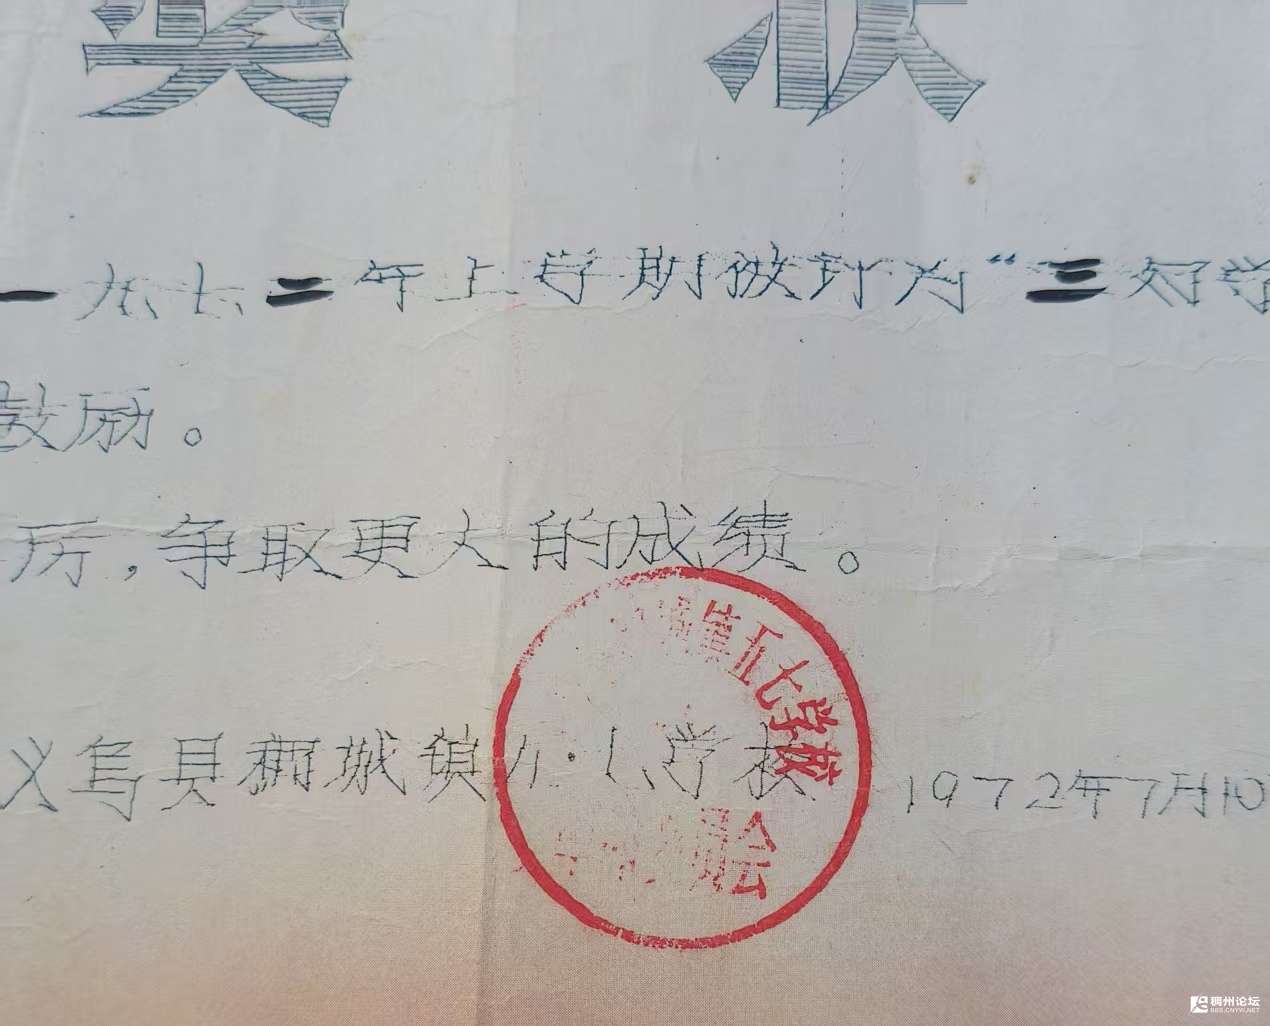 奖状
一九七二年上学期被评为“三好学
鼓励。
厉,争取更大的成绩。
义乌县稠城镇五·七学校 1972年7月10
镇五七学校
员会
稠州论坛
BBS.CNYW.NET